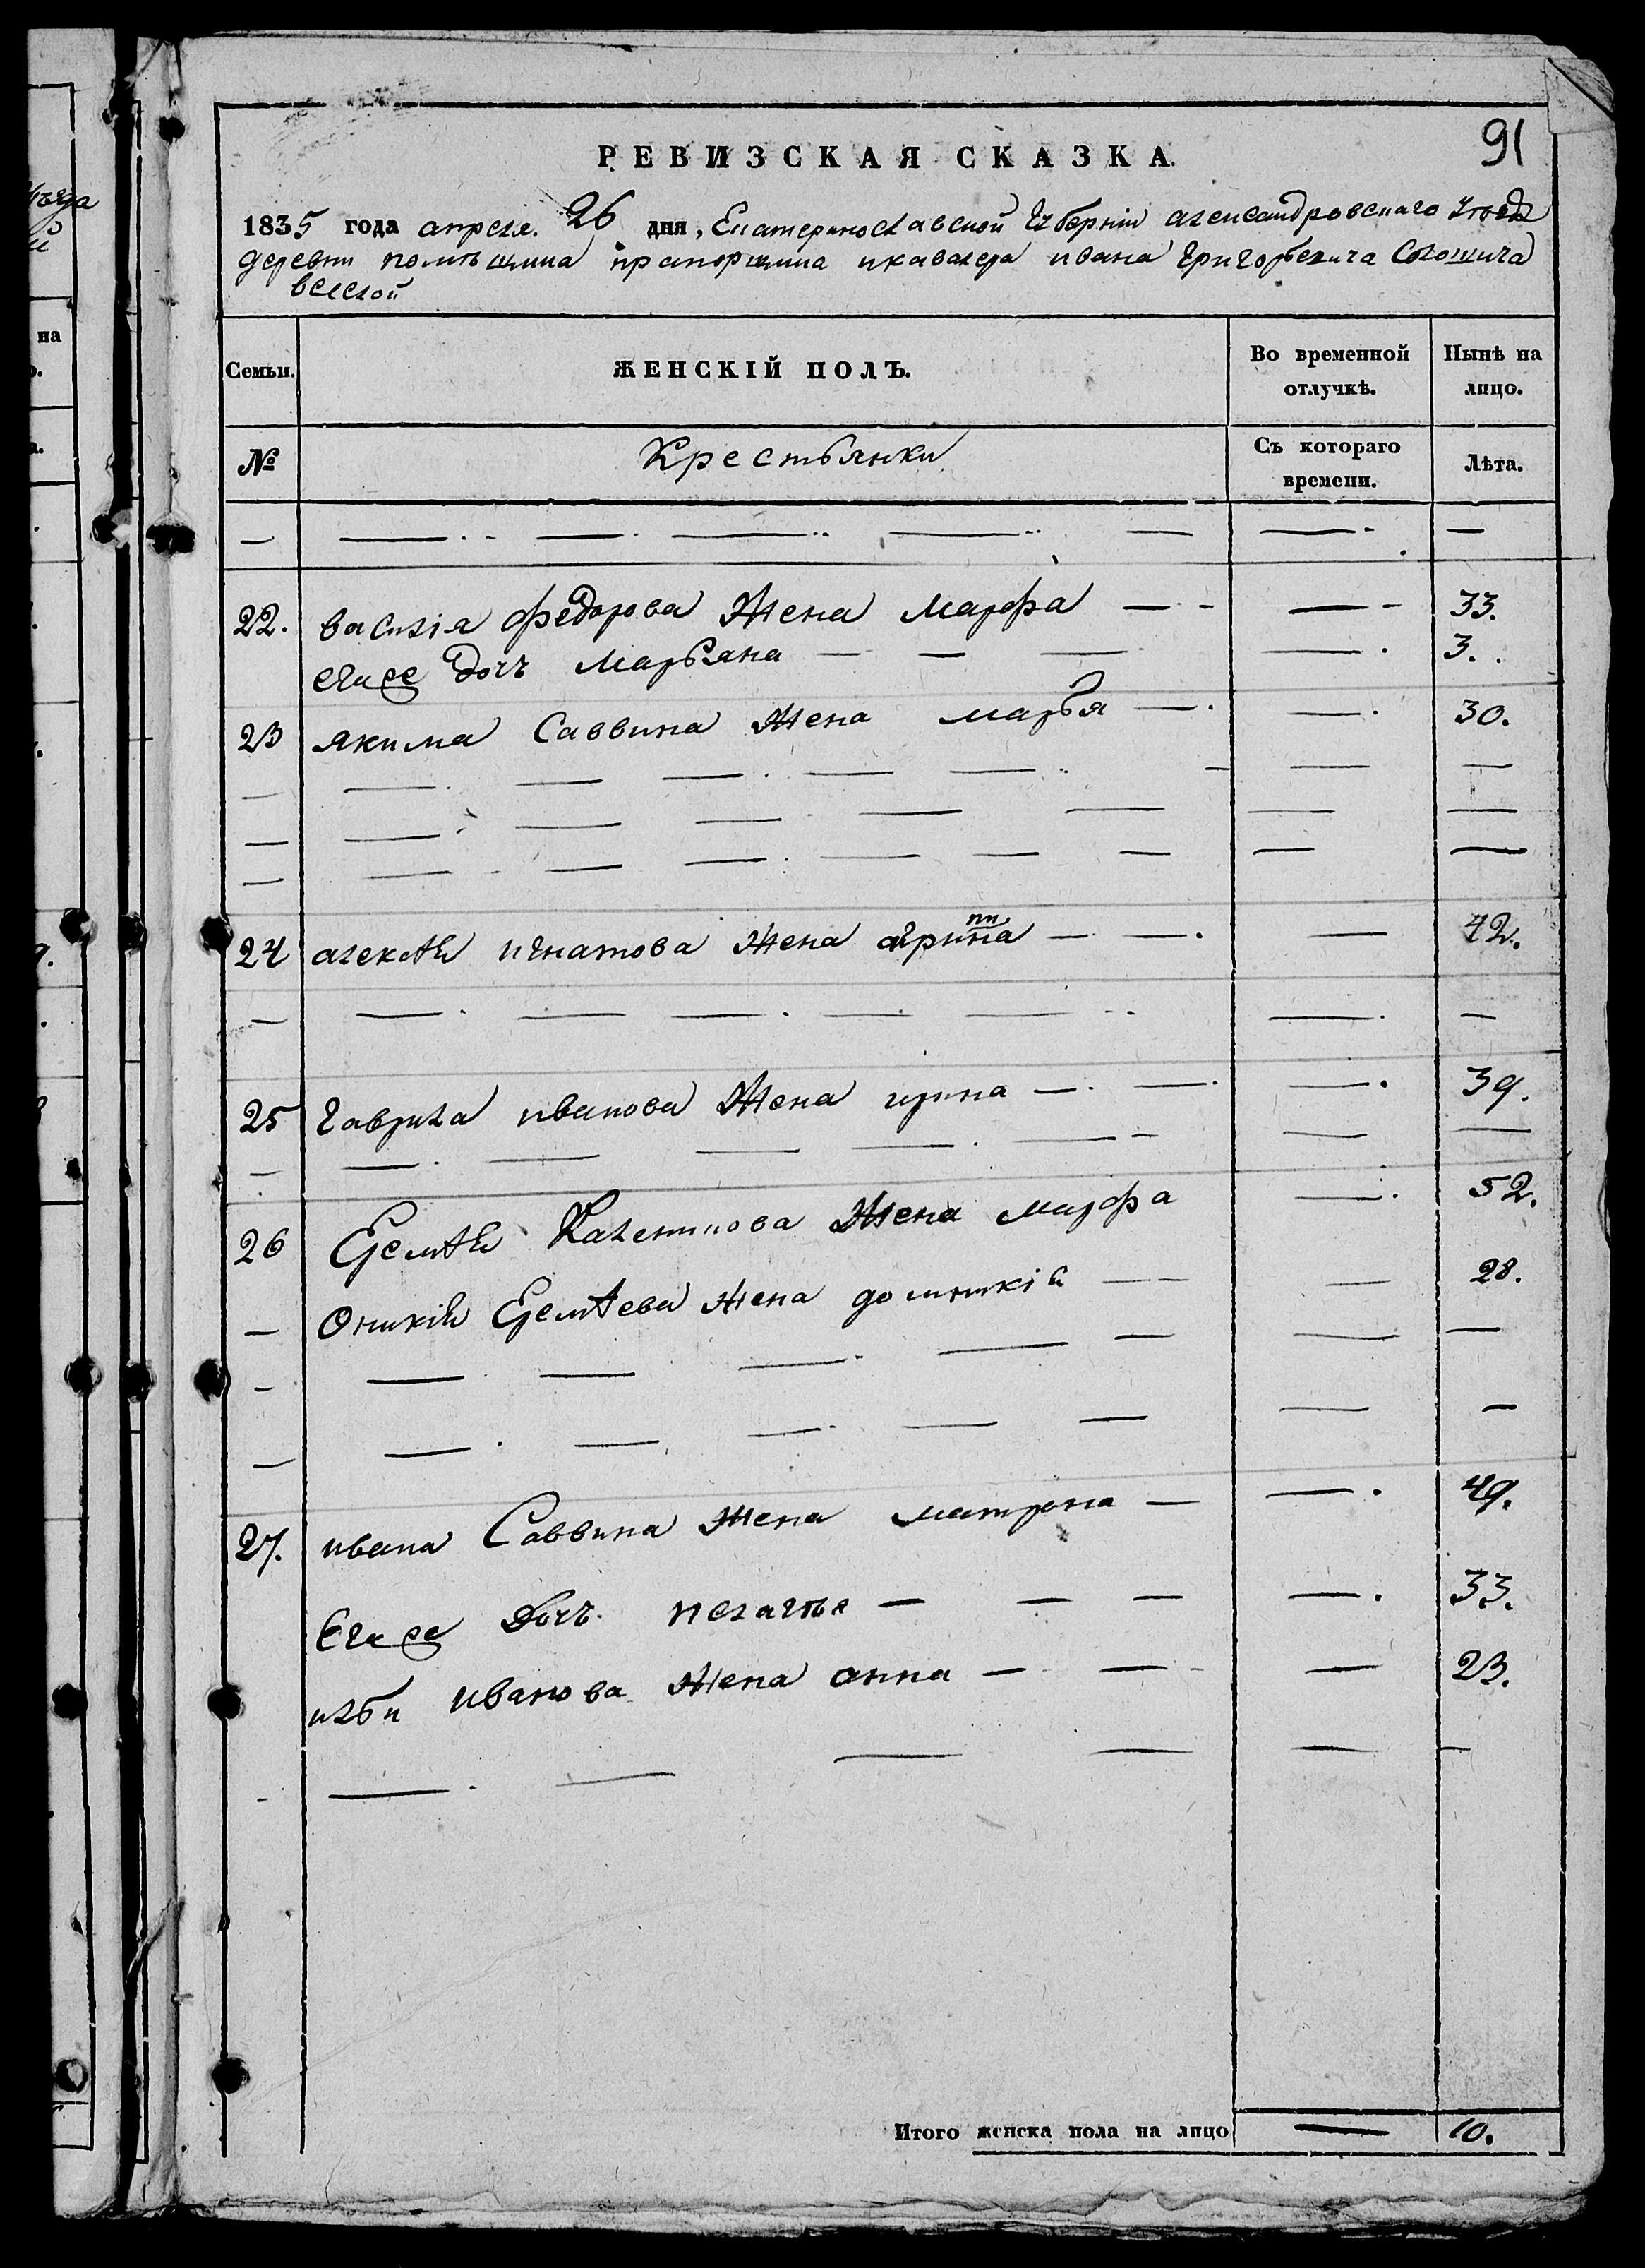 91
РЕВИЗСКАЯ СКАЗКА.
1835 года апреля. 26 дня, Екатеринославской Губернии александровскаго Уезда
деревни помѣщика прапорщика икавалера ивана Григорьевича
веселой
Семьи. ЖЕНСКІЙ ПОЛЪ. Во временной отлучкѣ. Нынѣ на лицо.
№ Крестьянки Съ котораго времени. Лѣта.
22. василія федорова Жена марфа 33.
егоже дочь марьяна 3.
23 якима Саввина Жена марья 30.
24 алексѣя игнатова жена агрипина 42.
25 гаврила иванова Жена ирина 39.
26 Еремѣя Калениkова Жена марфа 52.
Оникія Еремѣева жена домникія 28.
27. ивана Саввина жена матрона 49.
Егоже дочь пелагѣя 33.
ильи иванова жена анна 23.
Итого женска пола на лицо 10.
на